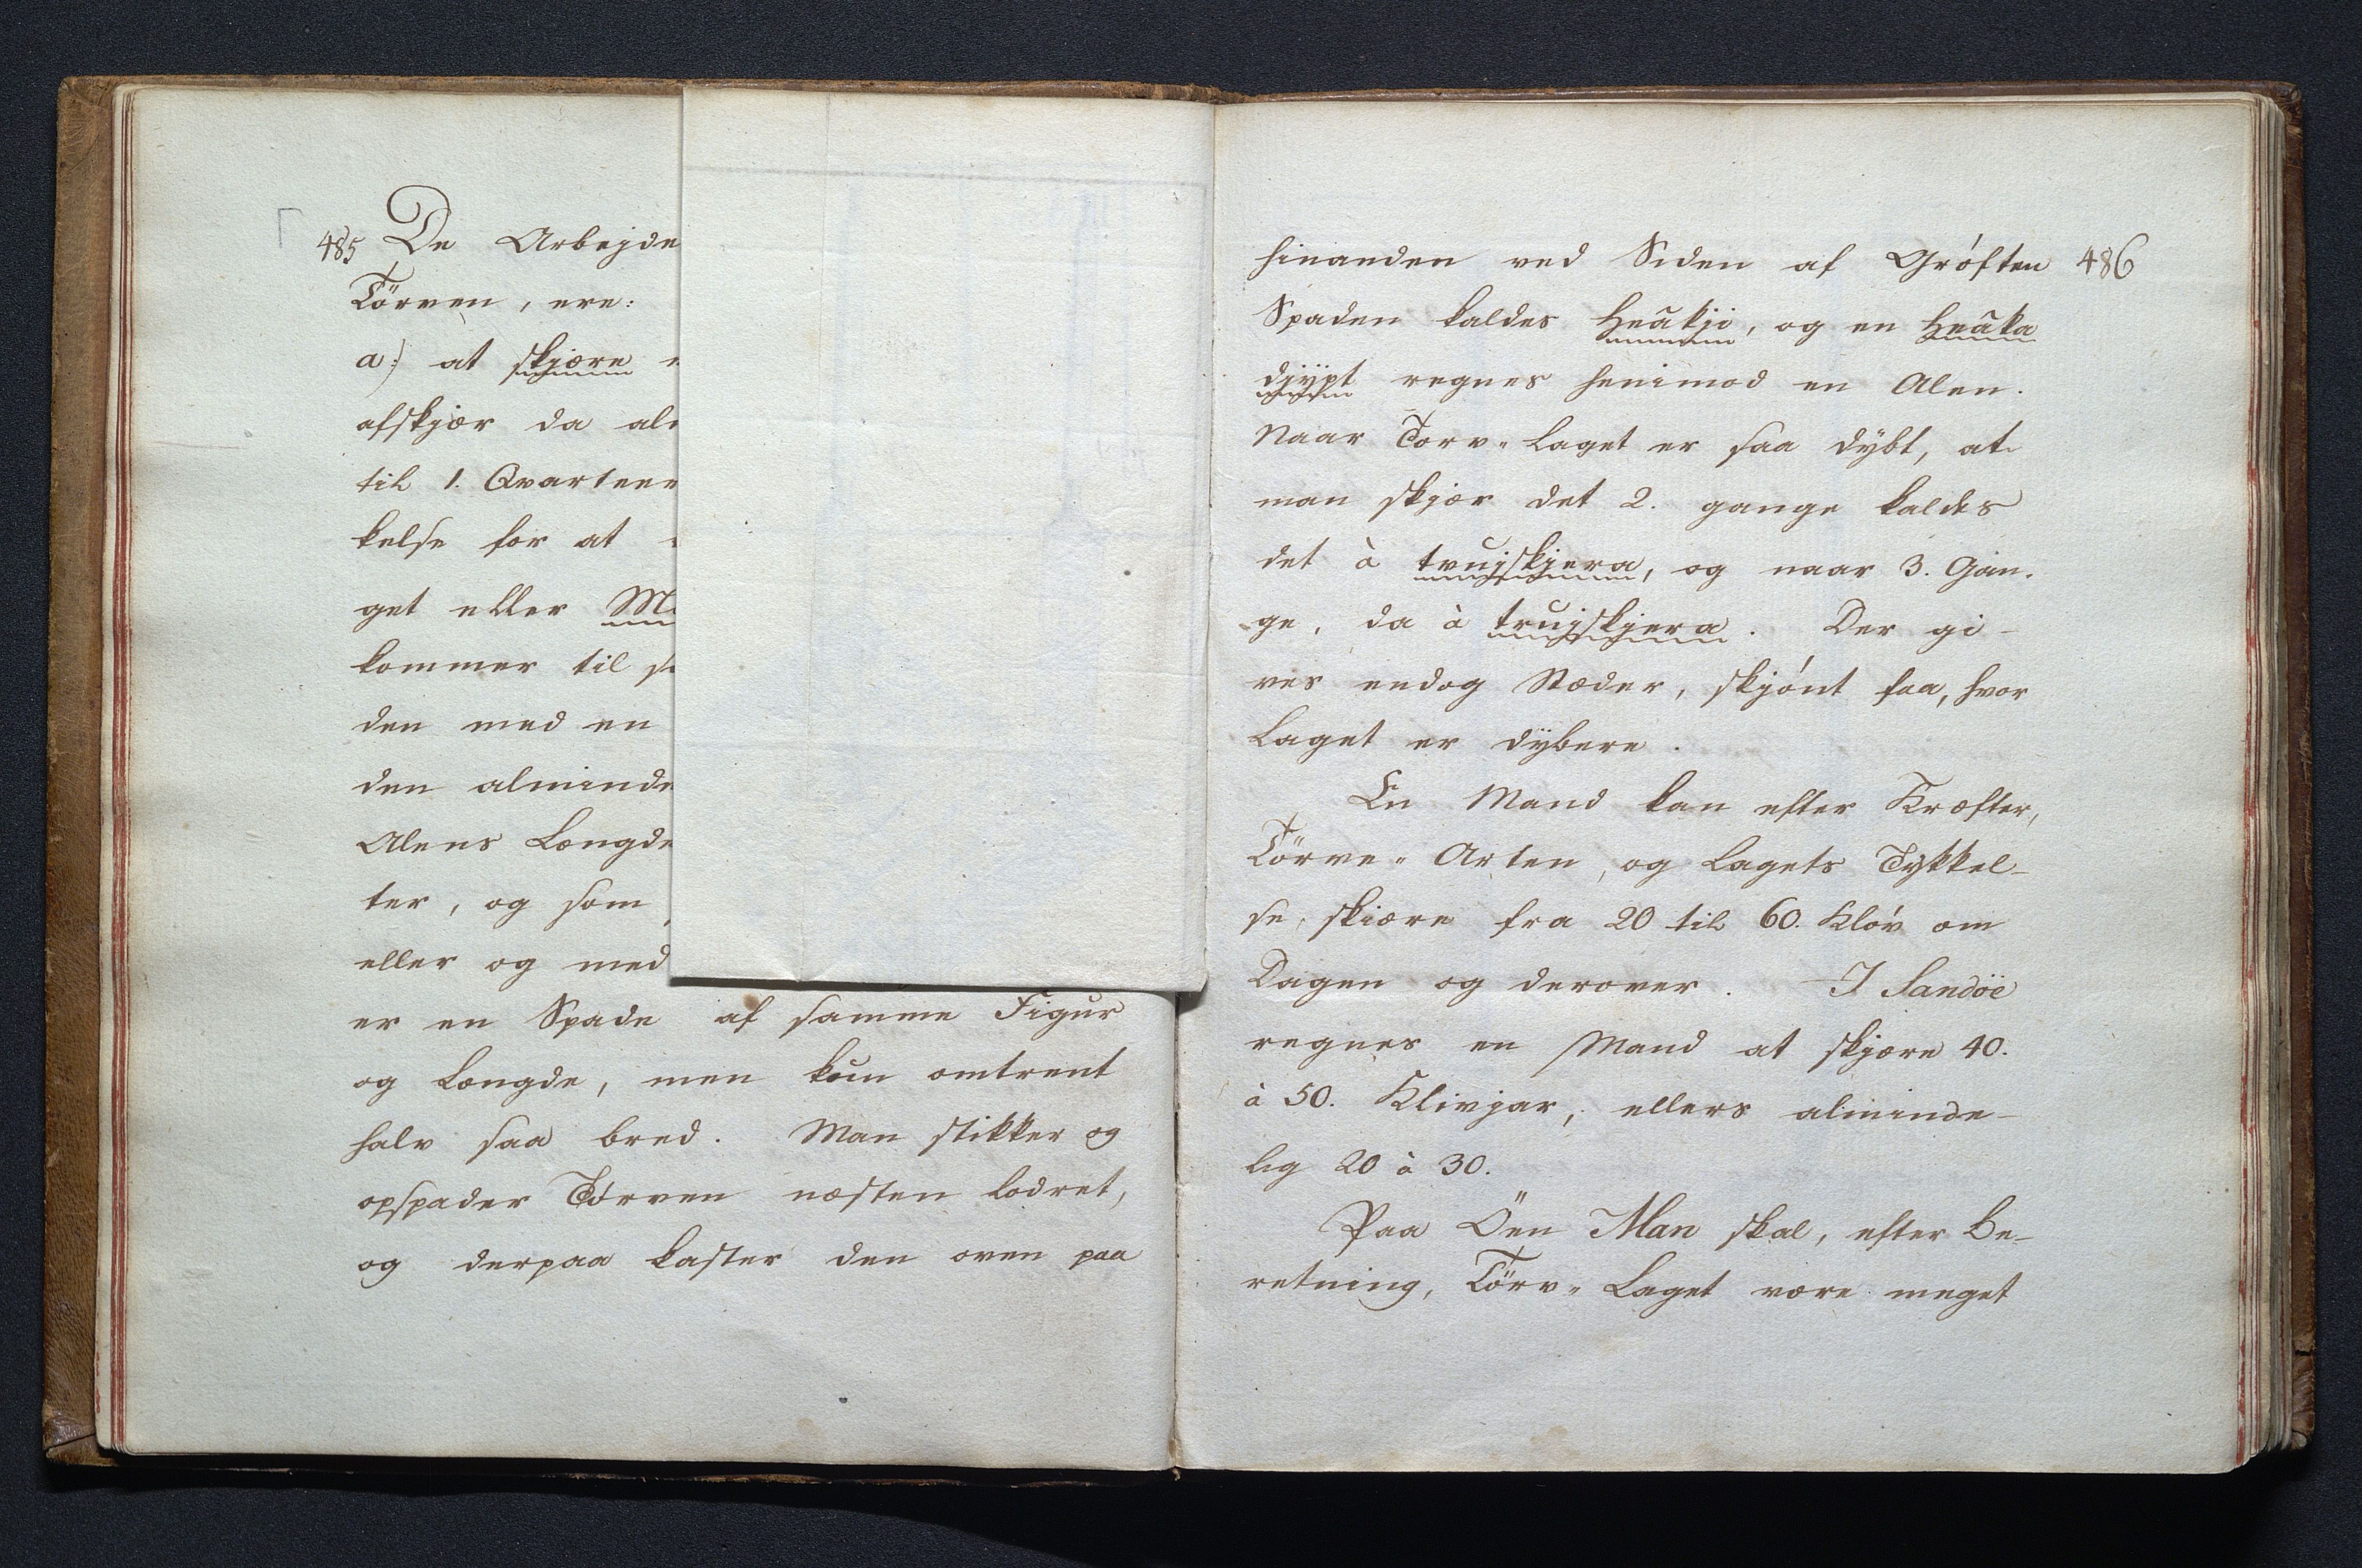 485 De Arbejde
Törven, ere:
a.) at skjære
afskjær da al
til 1. Qvarteer
kelse for at
get eller M
kommer til s
den med en
den alminde
Alens Længde
ter, og som
eller og med
er en Spade af samme Figur
og Længde, men kun omtrent
halv saa bred. Man stikker og
opspader Tórven næsten lodret,
og derpaa kaster den oven paa
hinanden ved Siden af Gróften 486
Spaden kaldes Heâkji, og en Heâka
djÿpt regnes henimod en Alen.
Naar Torv-Laget er saa dÿbt, at
man skjær det 2. gange kaldes
det à tvujskjera, og naar 3. Gan-
ge, da à trujskjera. Der gi-
ves endog Stæder, skjónt faa, hvor
Laget er dÿbere.
En Mand kan efter Kræfter,
Törve-Arten, og Lagets Tykkel-
se, skiære fra 20 til 60. Klóv om
Dagen og derover. I Sandöe
regnes en Mand at skjære 40.
à 50. Klivjar, ellers alminde-
lig 20 à 30.
Paa Öen Man skal, efter Be-
retning, Törv-Laget være meget